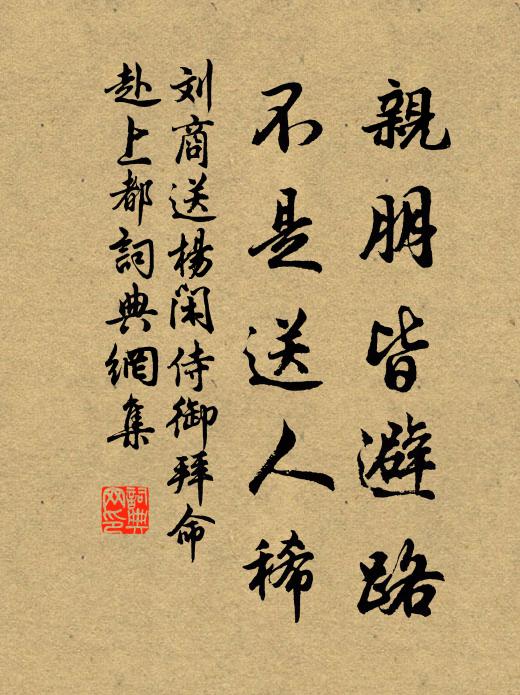 親朋皆避路
不是送人稀
刘商送楊闲侍御拜命
赴上都詞典網集
詞典網印